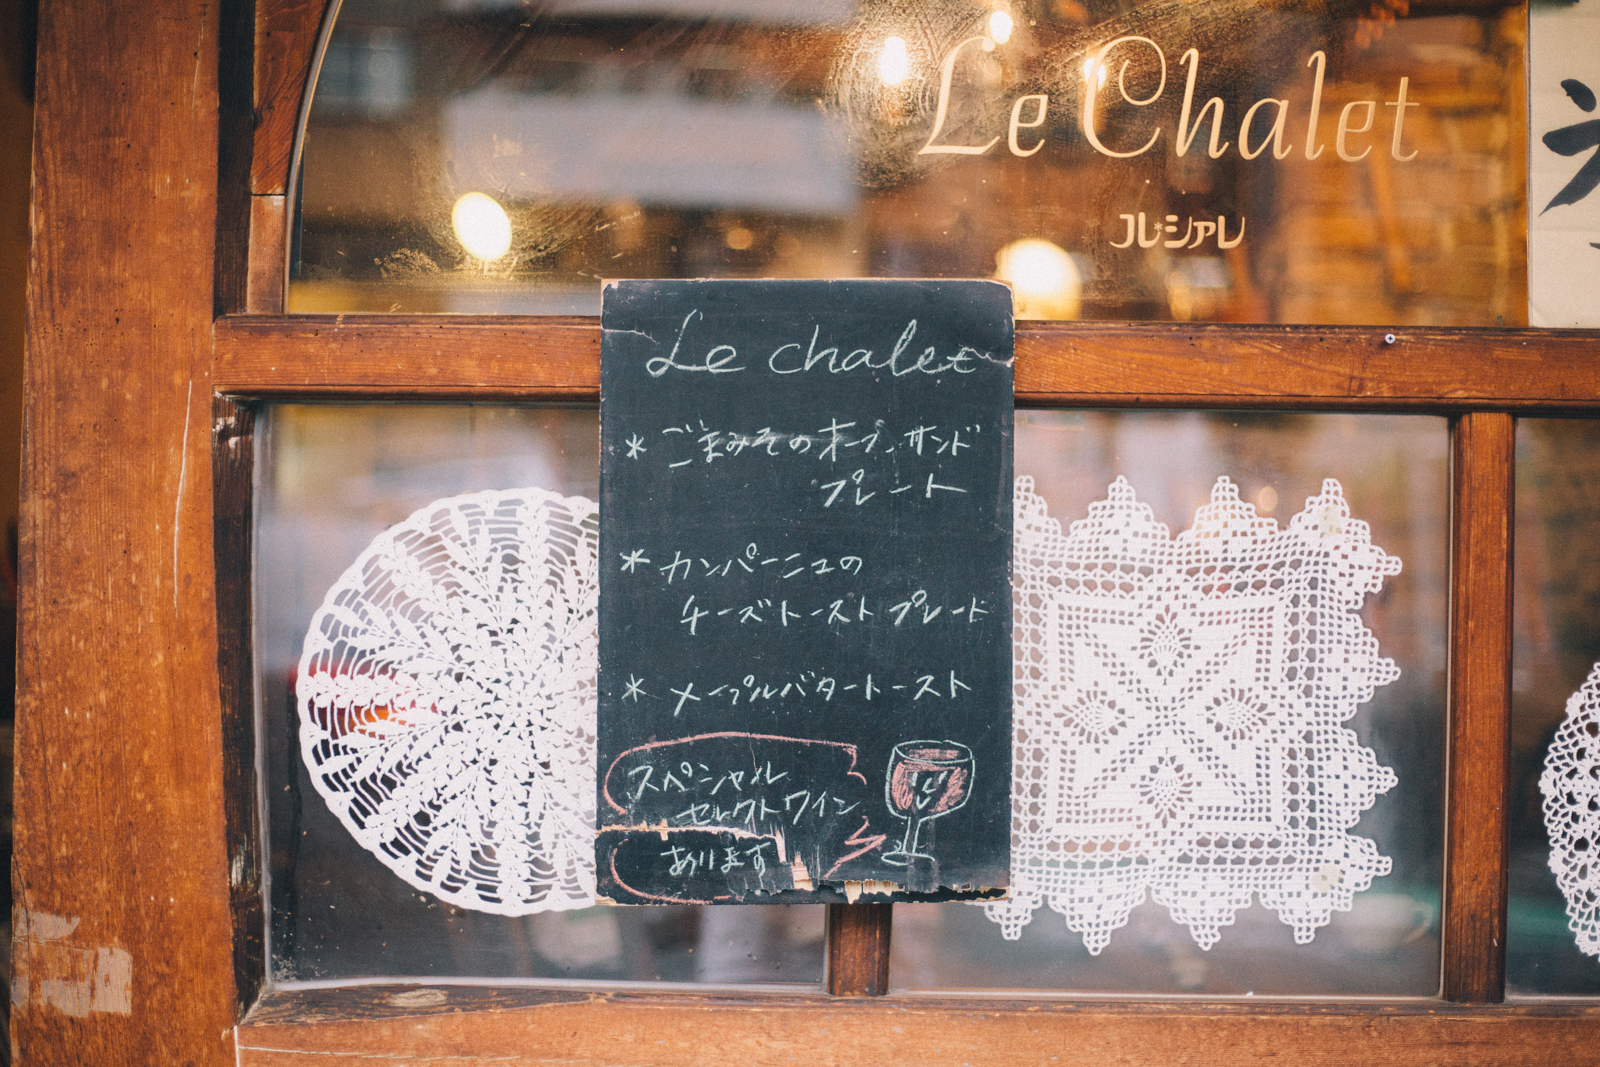 Le Chalet
ル・シァレ
Le chalet
* ごまみその オープンサンド
プレート
* カンパーニュの
チーズトースト プレート
* メープルバタートースト
スペシャル
セレクトワイン
あります